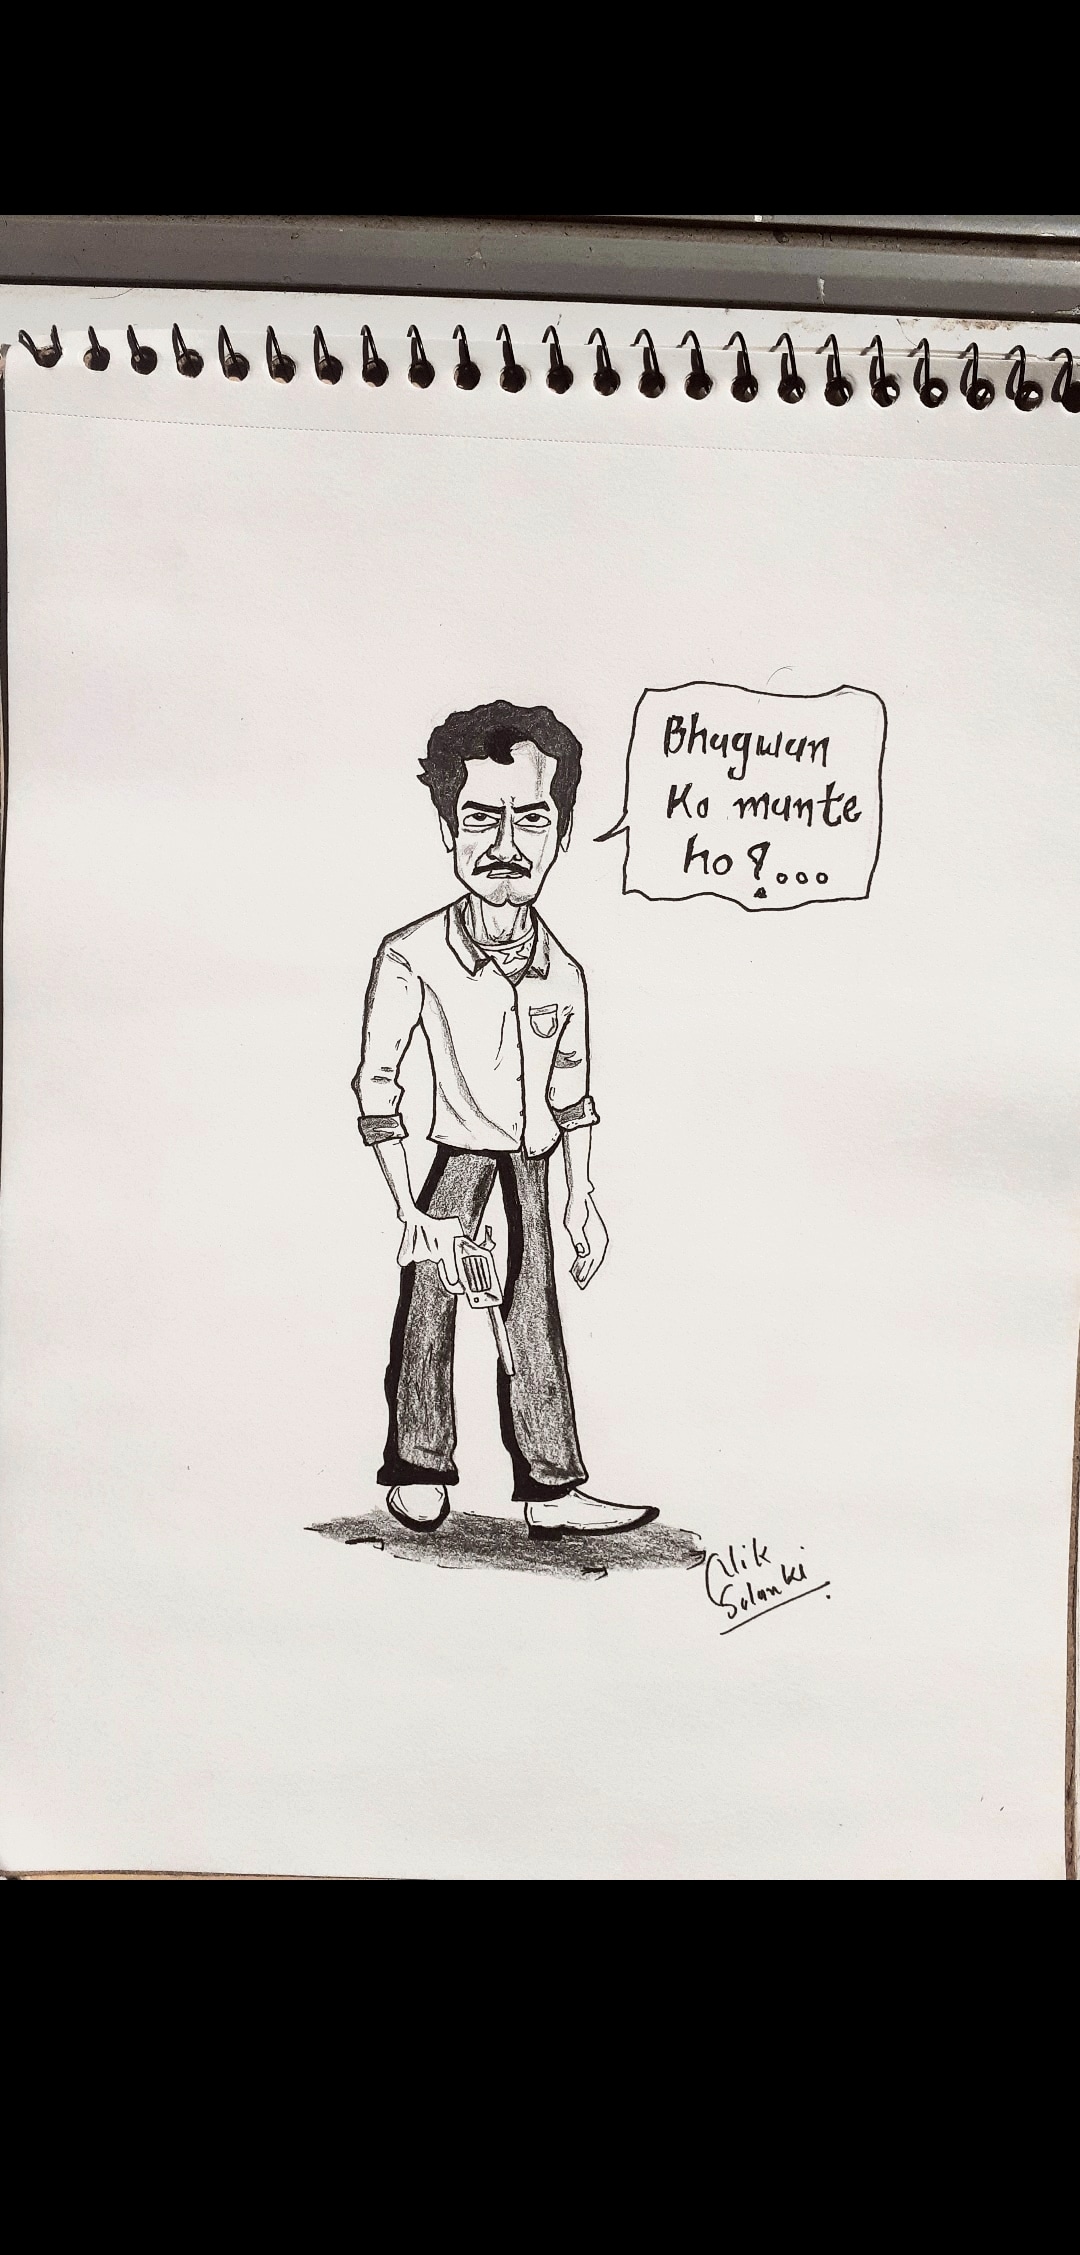 Bhagwan
Ko mante
ho?...
Alik
Solanki